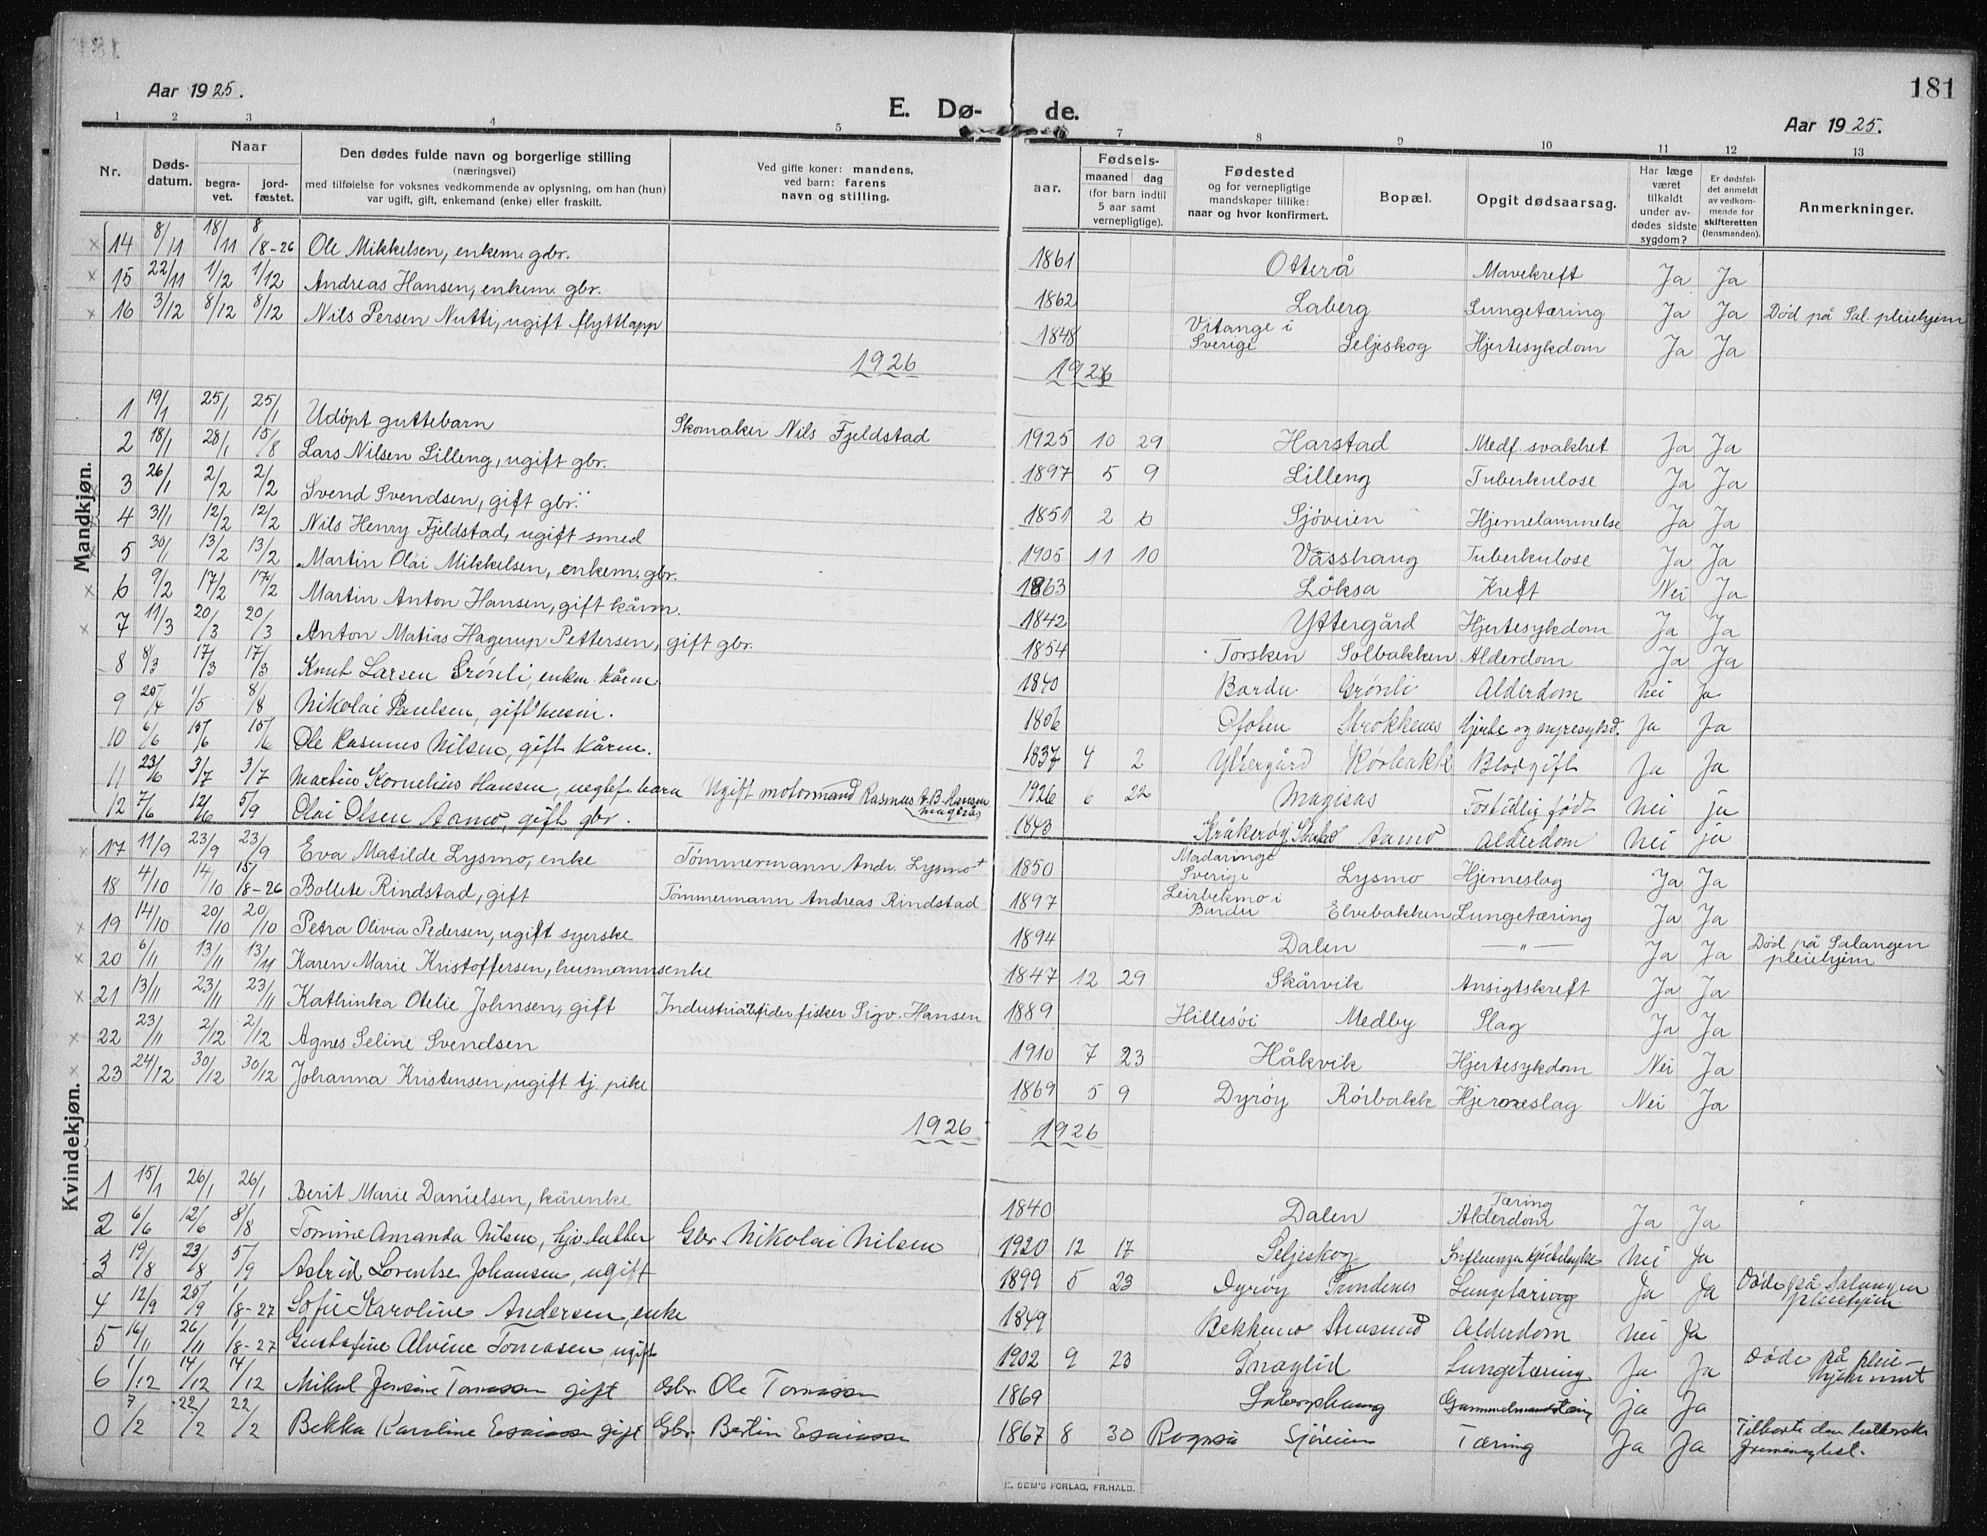 181
Aar 1925.
E. Dø- de.
Aar 1925.
1 2 3 4 5 7 8 9 10 11 12 13
Nr. Døds-datum. Naar begra-vet. jord-fæstet. Den dødes fulde navn og borgerlige stilling (næringsvei) med tilføielse for voksnes vedkommende av oplysning, om han (hun) var ugift, gift, enkemand (enke) eller fraskilt. Ved gifte koner: mandens, ved barn: farens navn og stilling. aar. Fødsels- maaned dag (for barn indtil 5 aar samt vernepligtige). Fødested og for vernepligtige mandskaper tillike: naar og hvor konfirmert. Bopæl. Opgit dødsaarsag. Har læge været tilkaldt under av-dødes sidste sygdom? Er dødsfal-det anmeldt av vedkom-mende for skifteretten (lensmanden). Anmerkninger.
Mandkjøn.
14 8/11 18/11 8/8-26 Ole Mikkelsen, enkem. gbr. 1861 Otterå Mavekreft Ja Ja
15 22/11 1/12 1/12 Andreas Hansen, enkem. gbr. 1862 Laberg Lungetæring Ja Ja Død på Sal. pleiehjem
16 3/12 8/12 8/12 Nils Persen Nutti, ugift flyttlapp 1848 Vitange i Sverige Seljeskog Hjertesykdom Ja Ja
1926 1926
1 19/1 25/1 25/1 Udøpt guttebarn Skomaker Nils Fjeldstad 1925 10 29 Harstad Medf. svakhet Ja Ja
2 18/1 28/1 15/8 Lars Nilsen Lilleng, ugift gbr. 1897 5 9 Lilleng Tuberkulose Ja Ja
3 26/1 2/2 2/2 Svend Svendsen, gift gbr. 1851 2 6 Sjøveien Hjernelammelse Ja Ja
4 31/1 12/2 12/2 Nils Henry Fjeldstad, ugift smed 1905 11 10 Vasshaug Tuberkulose Ja Ja
5 30/1 13/2 13/2 Martin Olai Mikkelsen, enkem. gbr. 1863 Løksa Kreft Nei Ja
6 9/2 17/2 17/2 Martin Anton Hansen, gift kårm. 1842 Yttergård Hjertesykdom Ja Ja
7 11/3 20/3 20/3 Anton Matias Hagerup Pettersen, gift gbr. 1854 Torsken Solbakken Alderdom Ja Ja
8 8/3 17/3 17/3 Knut Larsen Grønli, enkm. kårm. 1840 Bardu Grønli Alderdom Nei Ja
9 20/4 1/5 8/8 Nikolai Paulsen, gift husm. 1806 Ofoten Strokkenes Hjerte og nyresykd. Ja Ja
10 6/6 15/6 15/6 Ole Rasmus Nilsen, gift kårm. 1837 4 2 Yttergård Rørbakk Blodgift Ja Ja
11 23/6 3/7 3/7 Martin Kornelius Hansen, uegtef. barn Ugift motormand Rasmus A. B. Hansen Magisås 1926 6 22 Magisås Fortidlig født Nei Ja
12 7/6 12/6 5/9 Olai Olsen Aamo, gift gbr. 1843 Kråkerøy Aamo Alderdom Nei ja
Kvindekjøn.
17 11/9 23/9 23/9 Eva Matilde Lysmo, enke Tømmermann Andr. Lysmo + 1850 Sverige Lysmo Hjerneslag Ja Ja
18 4/10 14/10 15/8-26 Bollete Rindstad, gift Tømmermann Andreas Rindstad 1897 Leirbekmo i Bardu Elvebakken Lungetæring Ja Ja
19 14/10 20/10 20/10 Petra Olivia Pedersen, ugift syerske 1894 Dalen —"— Ja Ja Død på Salangen pleiehjem
20 6/11 13/11 13/11 Karen Marie Kristoffersen, husmannsenke 1847 12 29 Skårvik Ansigtskreft Ja Ja
21 13/11 23/11 23/11 Kathinka Otelie Johnsen, gift fisker Sigv. Hansen 1889 Hillesøi Medby Slag Ja Ja
22 23/11 2/12 2/12 Agnes Seline Svendsen 1910 7 23 Håkvik Hjertesykdom Nei Ja
23 24/12 30/12 30/12 Johanna Kristensen, ugift tj. pike 1869 5 9 Dyrøy Rørbakk Hjerneslag Nei Ja
1926 1926
1 15/1 26/1 26/1 Berit Marie Danielsen, kårenke 1840 Dalen Tæring Alderdom Ja Ja
2 6/6 12/6 8/8 Tomine Amanda Nilsen, Gbr. Nikolai Nilsen 1920 12 17 Seljeskog Influenza hjertesyke Nei Ja
3 19/8 23/8 5/9 Astrid Lorentse Johansen, ugift 1899 5 23 Dyrøy Trondenes Lungetæring Ja Ja Døde på Salangen pleiehjem
4 12/9 20/9 1/8-27 Sofie Karoline Andersen, enke 1849 Bekkemo Stensund Alderdom Nei Ja
5 16/11 26/11 1/8-27 Gustafine Alvine Tomasen, ugift 1902 9 23 Snøglid Lungetæring Ja Ja Døde på pleie-hjemmet
6 1/12 14/12 14/12 Mikal Jensine Tomassen gift Gbr. Ole Tomassen 1869 Ja Ja
0 7/2 22/2 22/2 Bekka Karoline Esaiassen gift Gbr. Bertin Esaiassen 1867 8 30 Sjøveien Tæring Ja Ja
E. SEM'S FORLAG, FR.HALD.